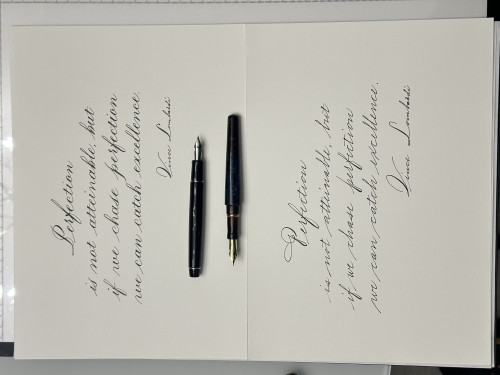 Perfection
is not attainable, but
if we chase perfection
we can catch excellence.
Vince Lombardi
Perfection
is not attainable, but
if we chase perfection
we can catch excellence.
Vince Lombardi